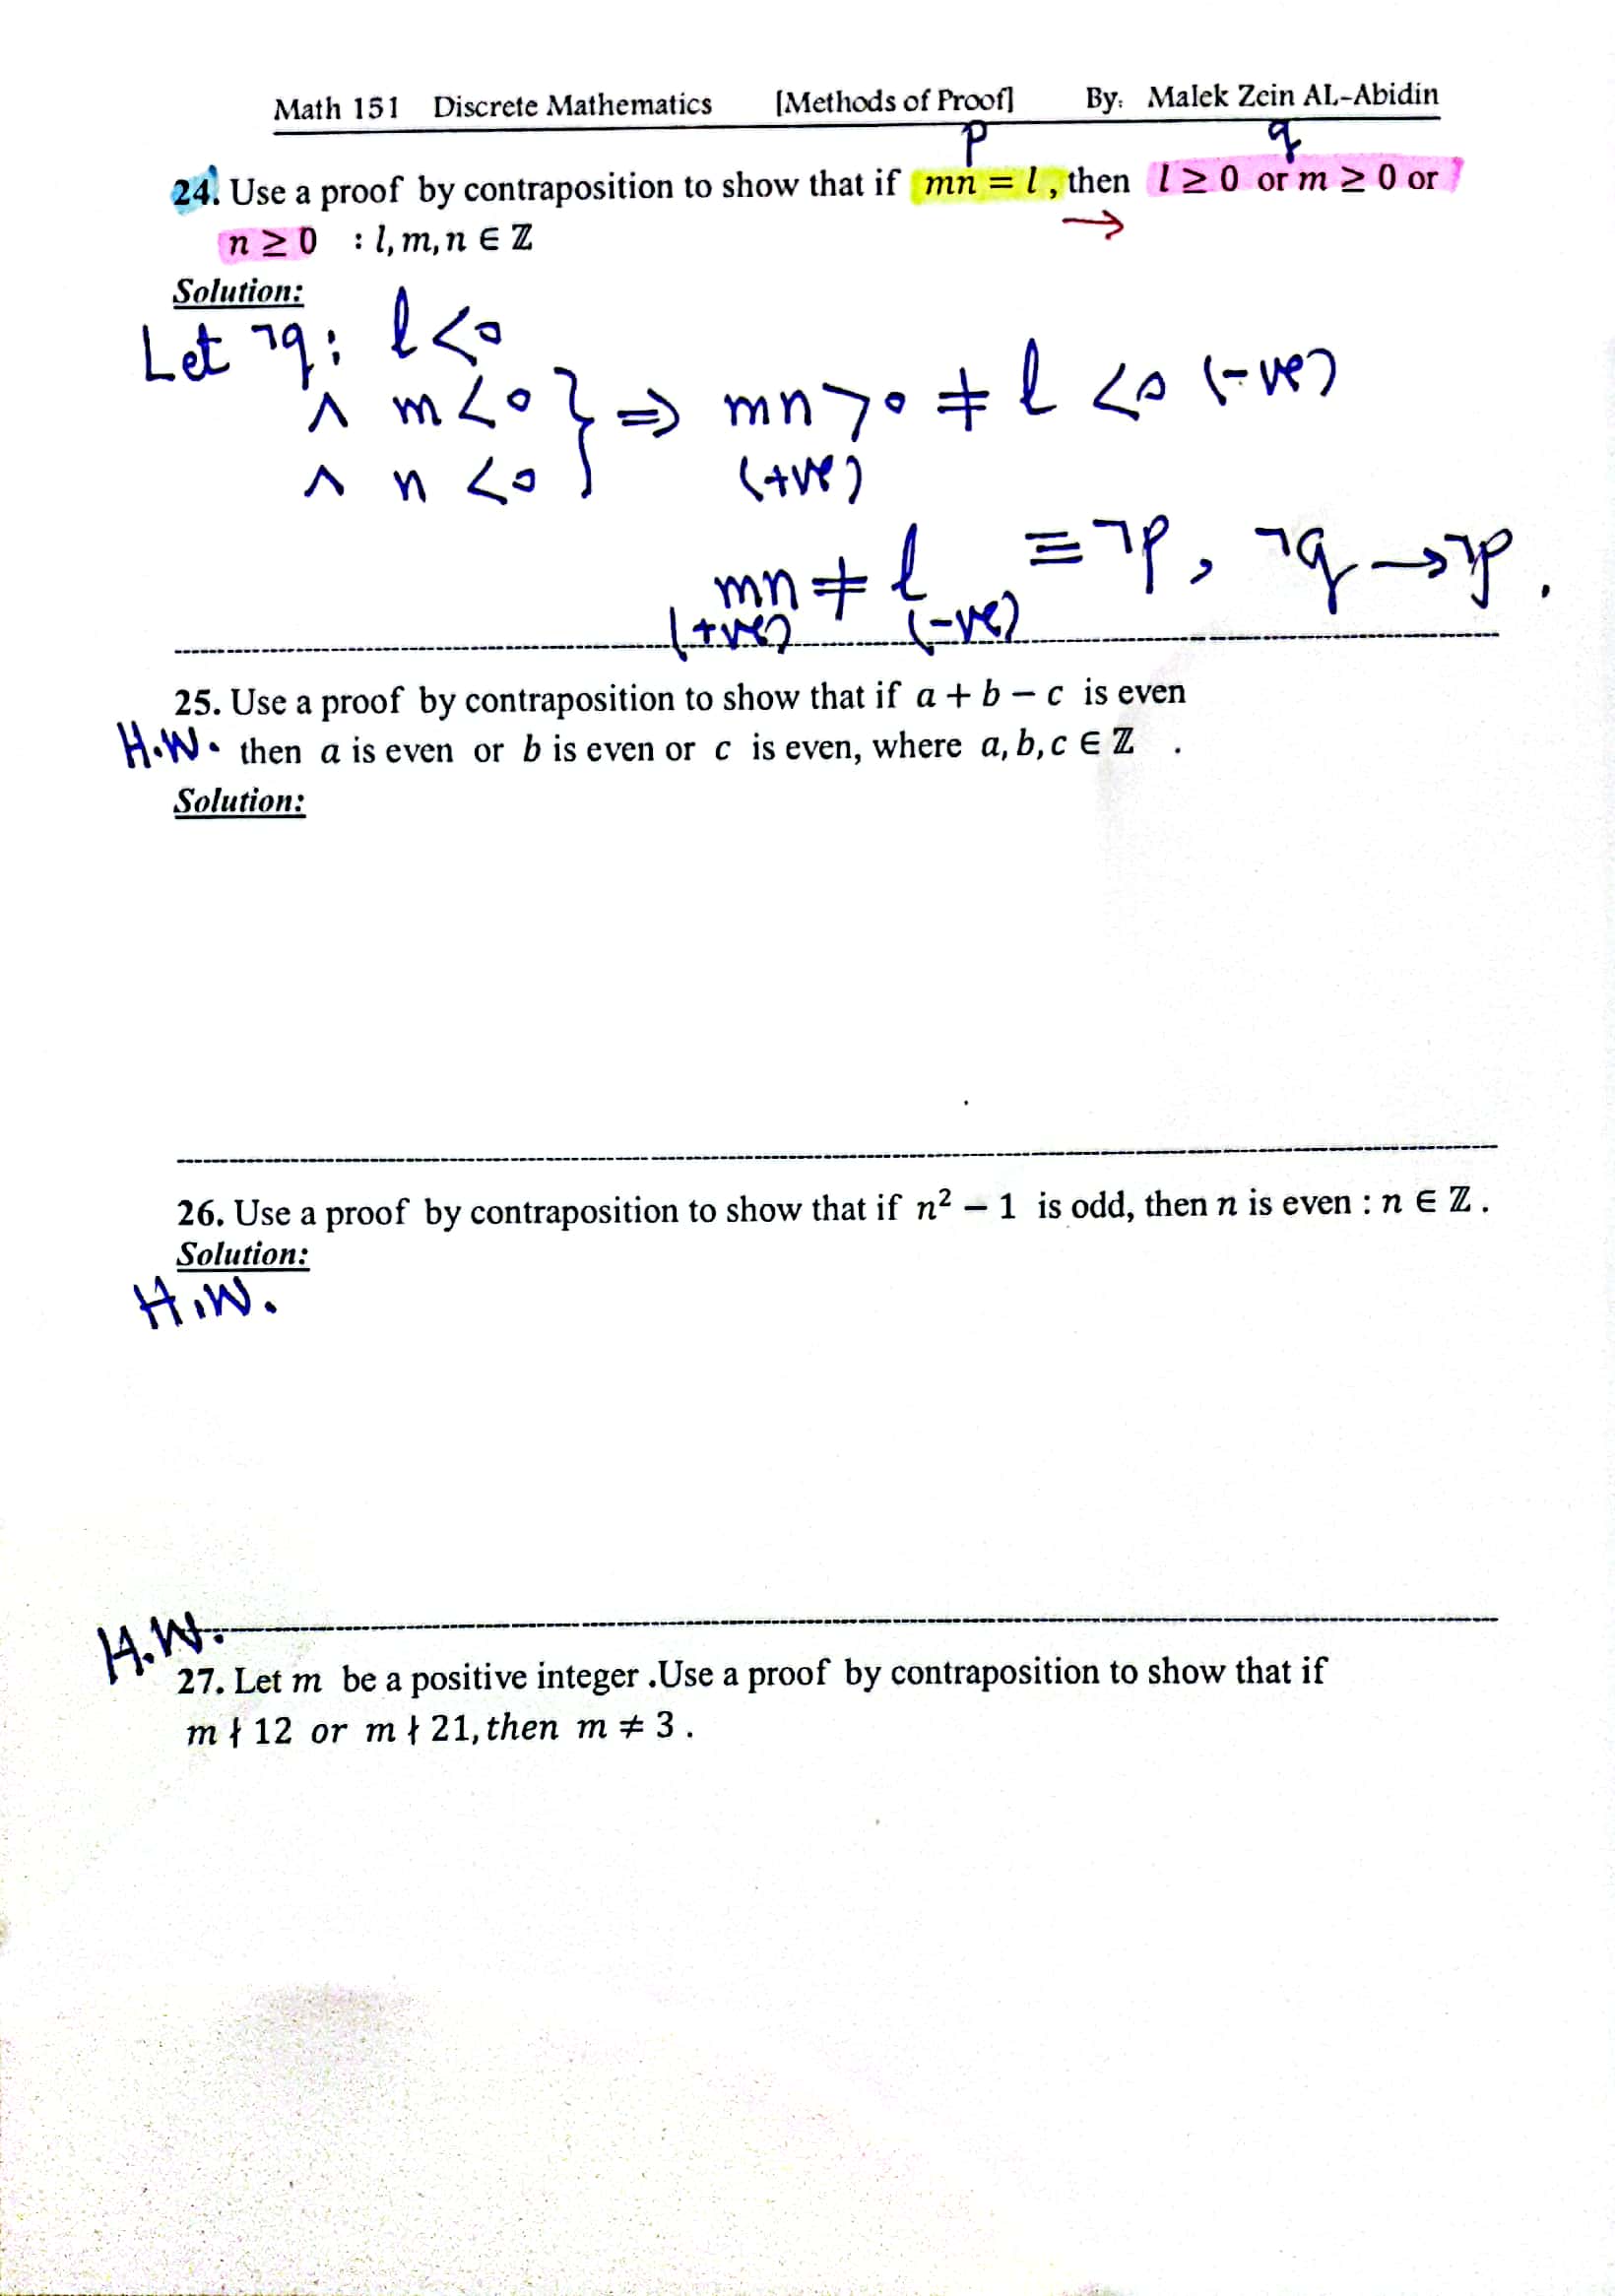 Math 151 Discrete Mathematics [Methods of Proof] By: Malek Zein AL-Abidin
p q
24. Use a proof by contraposition to show that if mn = l , then l ≥ 0 or m ≥ 0 or
→
n ≥ 0 : l, m, n ∈ ℤ
Solution:
Let ¬q: l < 0
∧ m < 0 } ⇒ mn > 0 ≠ l < 0 (-ve)
∧ n < 0 (+ve)
mn ≠ l ≡ ¬p, ¬q → ¬p.
(+ve) (-ve)
25. Use a proof by contraposition to show that if a + b − c is even
H.W. then a is even or b is even or c is even, where a, b, c ∈ ℤ .
Solution:
26. Use a proof by contraposition to show that if n² − 1 is odd, then n is even : n ∈ ℤ .
Solution:
H.W.
H.W.
27. Let m be a positive integer .Use a proof by contraposition to show that if
m ∤ 12 or m ∤ 21, then m ≠ 3 .